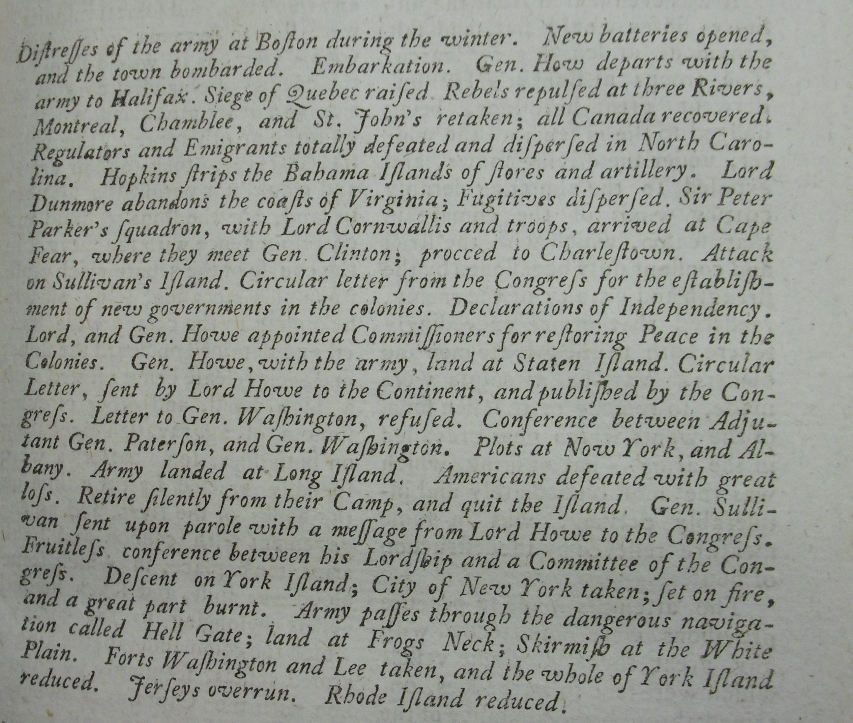 Diſtreſſes of the army at Boſton during the winter. New batteries opened,
and the town bombarded. Embarkation. Gen. How departs with the
army to Halifax. Siege of Quebec raiſed. Rebels repulſed at three Rivers,
Montreal, Chamblee, and St. John's retaken; all Canada recovered.
Regulators and Emigrants totally defeated and diſperſed in North Caro-
lina. Hopkins ſtrips the Bahama Iſlands of ſtores and artillery. Lord
Dunmore abandons the coaſts of Virginia; Fugitives diſperſed. Sir Peter
Parker's ſquadron, with Lord Cornwallis and troops, arrived at Cape
Fear, where they meet Gen. Clinton; procced to Charleſtown. Attack
on Sullivan's Iſland. Circular letter from the Congreſs for the eſtabliſh-
ment of new governments in the colonies. Declarations of Independency.
Lord, and Gen. Howe appointed Commiſſioners for reſtoring Peace in the
Colonies. Gen. Howe, with the army, land at Staten Iſland. Circular
Letter, ſent by Lord Howe to the Continent, and publiſhed by the Con-
greſs. Letter to Gen. Waſhington, refuſed. Conference between Adju-
tant Gen. Paterſon, and Gen. Waſhington. Plots at Now York, and Al-
bany. Army landed at Long Iſland. Americans defeated with great
loſs. Retire ſilently from their Camp, and quit the Iſland. Gen. Sulli-
van ſent upon parole with a meſſage from Lord Howe to the Congreſs.
Fruitleſs conference between his Lordſhip and a Committee of the Con-
greſs. Deſcent on York Iſland; City of New York taken; ſet on fire,
and a great part burnt. Army paſſes through the dangerous naviga-
tion called Hell Gate; land at Frogs Neck; Skirmiſh at the White
Plain. Forts Waſhington and Lee taken, and the whole of York Iſland
reduced. Jerſeys overrun. Rhode Iſland reduced.